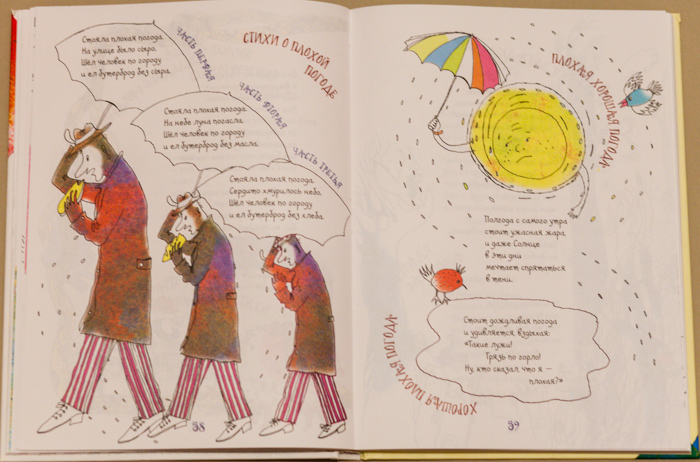 СТИХИ О ПЛОХОЙ
ПОГОДЕ
ЧАСТЬ ПЕРВАЯ
Стояла плохая погода.
На улице было сыро.
Шёл человек по городу
и ел бутерброд без сыра.
ЧАСТЬ ВТОРАЯ
Стояла плохая погода.
На небе луна погасла.
Шёл человек по городу
и ел бутерброд без масла.
ЧАСТЬ ТРЕТЬЯ
Стояла плохая погода.
Сердито хмурилось небо.
Шёл человек по городу
и ел бутерброд без хлеба.
38
ПЛОХАЯ ХОРОШАЯ ПОГОДА
Полгода с самого утра
стоит ужасная жара
и даже Солнце
в эти дни
мечтает спрятаться
в тени.
ХОРОШАЯ ПЛОХАЯ ПОГОДА
Стоит дождливая погода
и удивляется, вздыхая:
«Такие лужи!
Грязь по горло!
Ну, кто сказал, что я —
плохая?»
39